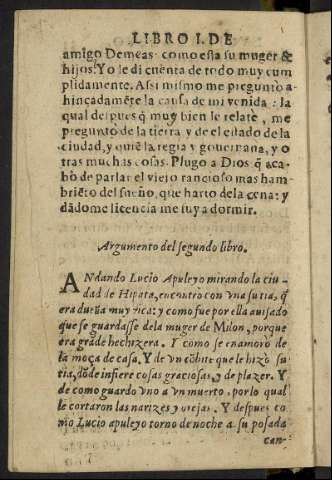 LIBRO I. DE
amigo Demeas como esta su muger &
hijos? Yo le di cuenta de todo muy cum
plidamente. Assi mismo me pregunto a-
hincadamẽte la causa de mi venida: la
qual despues q̃ muy bien le relate, me
pregunto de la tierra y de el estado de la
ciudad, y quiẽ la regia y gouernaua, y o
tras muchas cosas. Plugo a Dios q̃ aca-
bò de parlar el viejo rancioso mas ham-
briẽto del sueño, que harto de la cena: y
dãdome licencia me fuy a dormir.
Argumento del segundo libro.
ANdando Lucio Apuleyo mirando la ciu-
dad de Hipata, encontrò con vna su tia, q̃
era dueña muy rica: y como fue por ella auisado
que se guardasse de la muger de Milon, porque
era grãde hechizera. Y como se enamorò de
la moça de casa. Y de vn cõbite que le hizo su
tia, dõde infiere cosas graciosas, y de plazer. Y
de como guardo vno a vn muerto, por lo qual
le cortaron las narizes y orejas. Y despues co
mo Lucio apuleyo torno de noche a su posada
can-